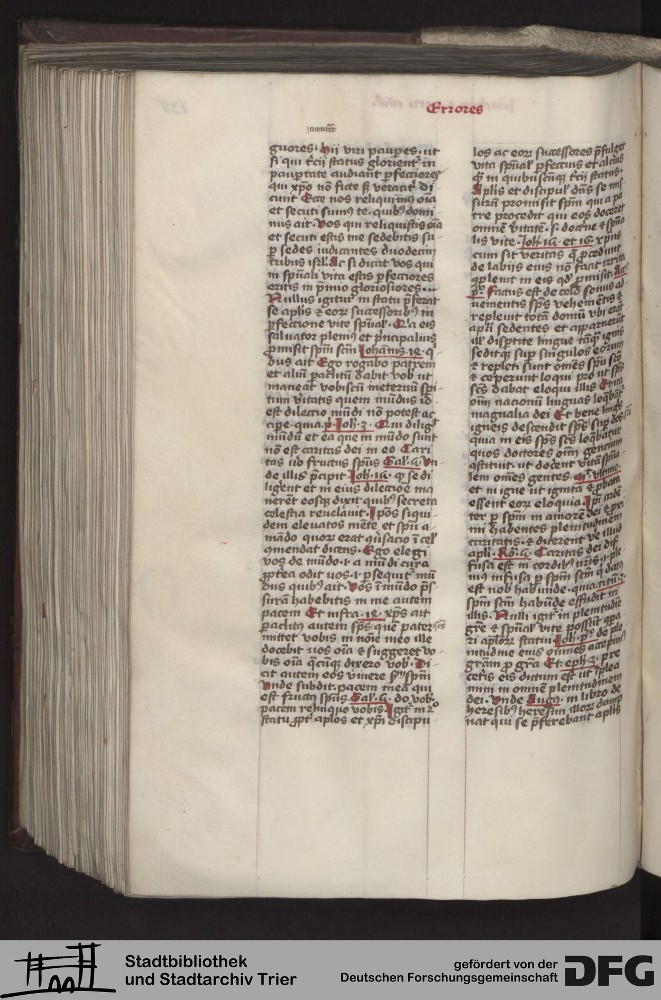 Errores
guores. hij viri paupes. ut
si qui tcij status glorient in
paupertate audiant pfecciores
qui xpo no ficte s; veracit di
cunt Ecce nos reliquimus oia
et secuti sumus te. quib9 domi
nus ait. Vos qui reliquistis oia
et secuti estis me sedebitis su
p sedes iudicantes duodecim
tribus isrl. Ac si dicat vos qui
in spuali vita estis pfecciores
eritis in pmio gloriosiores.
Nullus igitur in statu pferat
se aplis & eor successorib9 in
pfeccione vite spual. Qia eis
saluator plenius et pncipaliu9
pmisit spm scm Johannis .14. q
bus ait Ego rogabo patrem
et aliu paclitu dabit vob ut
maneat vobiscu ineternu spi
tum vitatis quem mudus id
est dilectio mudi no potest ac
cipe. quia p. Joh. 2. Qui dilig
mudu et ea que in mudo sunt
no est caritas dei in eo Cari
tas uo fructus spus Gal. 5. Vn
de illis pcipit Joh. 15. q se di
ligent et in eius dileccione ma
nerent eosq; dixit quib9 secreta
celestia reuelauit. Ipos siqui
dem eleuatos mete et spu a
mudo quor erat qusacio i cel
qmendat dicens. Ego elegi
vos de mudo. et a mudi cura
ppterea odit uos. et psequit mu
dus quib9 ait. Vos i mudo ps
suram habebitis in me autem
pacem Et infra. 14. xps ait
paclitus autem sps que pater
mittet vobis in noie meo ille
docebit uos oia & suggeret vo
bis oia qcuq; dixero vob. Di
cit autem eos viuere sm spm
Vnde subdit. pacem mea qui
est fructus spus Gal. 5. do vob.
pacem relinquo vobis. Igit in
statu ppt aplos et xpi discipu
los ac eor successores pfulget
vita spual pfectius et alcius
q in quibuscuq; tcij status.
Aplis et discipul dns se mis
suru promisit spm qui a pa
tre procedit qui eos doceret
omne vitate. s. doctne & spua
lis vite. Joh. 14. et 16. xpius
cum sit veritas q pcedunt
de labijs eius no faciat irrita
qpleuit in eis qd pmisit. Act
Factus est de celo sonus ad
uenientis sps vehementis &
repleuit tota domu vbi erat
apli sedentes et apparuerut
ill disptite lingue taq; ignis
seditq; sup singulos eorum
& repleti sunt omes spu sco
& ceperunt loqui put sps
scs dabat eloqui illis
om nacionu linguas loqbat
magnalia dei Et bene lingu
igneis descendit sps sup dos
quia in eis sps scs loqbatur
quos doctores om gencium
qstituit. ut docent
lem omes gentes. vltimo.
et in igne ut ignita & pbata
essent eor eloquia.
ter p spm in amore dei & pxi
mi habentes plenitudinem
caritatis. & dicerent ve illud
apli. Ro. 5. Caritas dei dif
fusa est in cordib9 nris. i. ple
nius infusa p spm scm q dat9
est nob habunde. quantum
spm scm habude effudit in
illis. Nulli igit in plenitudie
gre & spual vite possut qpa
ri aplor statui Joh. p. de ple
nitudine eius omnes accepim9
gram p gra Et eph. 3. p re
cetis eis dictum est ut iplea
mini in omne plenitudinem
dei. Vnde Augu9. in libro de
heresib9 heresim illor damp
nat qui se pferebant aplis
Stadtbibliothek
und Stadtarchiv Trier
gefördert von der
Deutschen Forschungsgemeinschaft
DFG